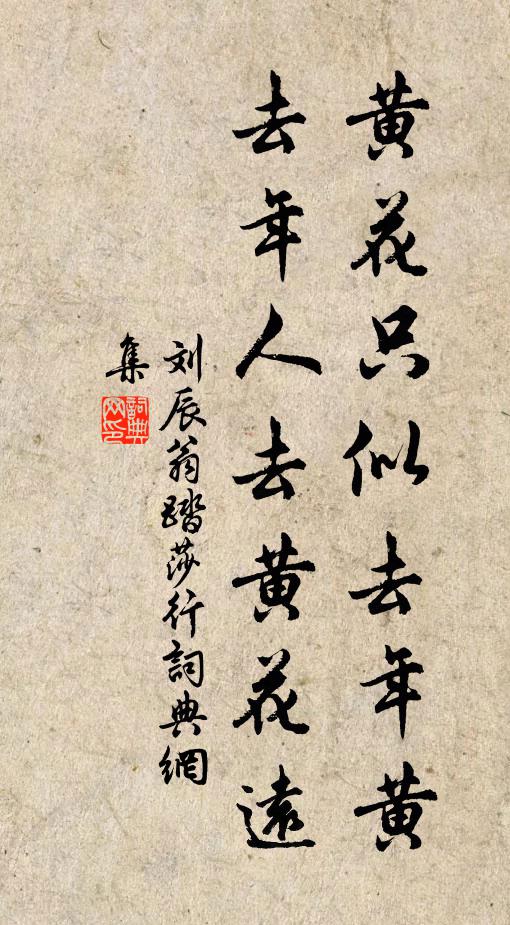 黄花只似去年黄
去年人去黄花遠
刘辰翁踏莎行詞典網
集
詞典
网印